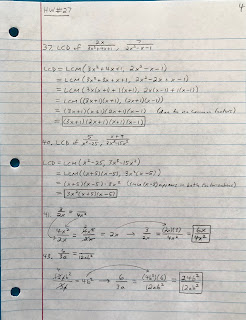 HW #27
4
37. LCD of 2x/(3x²+4x+1), 7/(2x²-x-1)
LCD = LCM(3x²+4x+1, 2x²-x-1)
= LCM(3x²+3x+x+1, 2x²-2x+x-1)
= LCM(3x(x+1)+1(x+1), 2x(x-1)+1(x-1))
= LCM((3x+1)(x+1), (2x+1)(x-1))
= (3x+1)(x+1)(2x+1)(x-1) (due to no common factors)
= (3x+1)(2x+1)(x+1)(x-1)
40. LCD of 5/(x²-25), /(3x³-15x²)
LCD = LCM(x²-25, 3x³-15x²)
= LCM((x+5)(x-5), 3x²(x-5))
= (x+5)(x-5)·3x² (since (x-5) appears in both factorizations)
= 3x²(x+5)(x-5)
41. 3/2x = /4x²
4x²/2x = = 2x → 3/2x = (2x)(3)/4x² = 6x/4x²
43. 6/3a = /12ab²
= 4b² → 6/3a = (4b²)(6)/12ab² = 24b²/12ab²